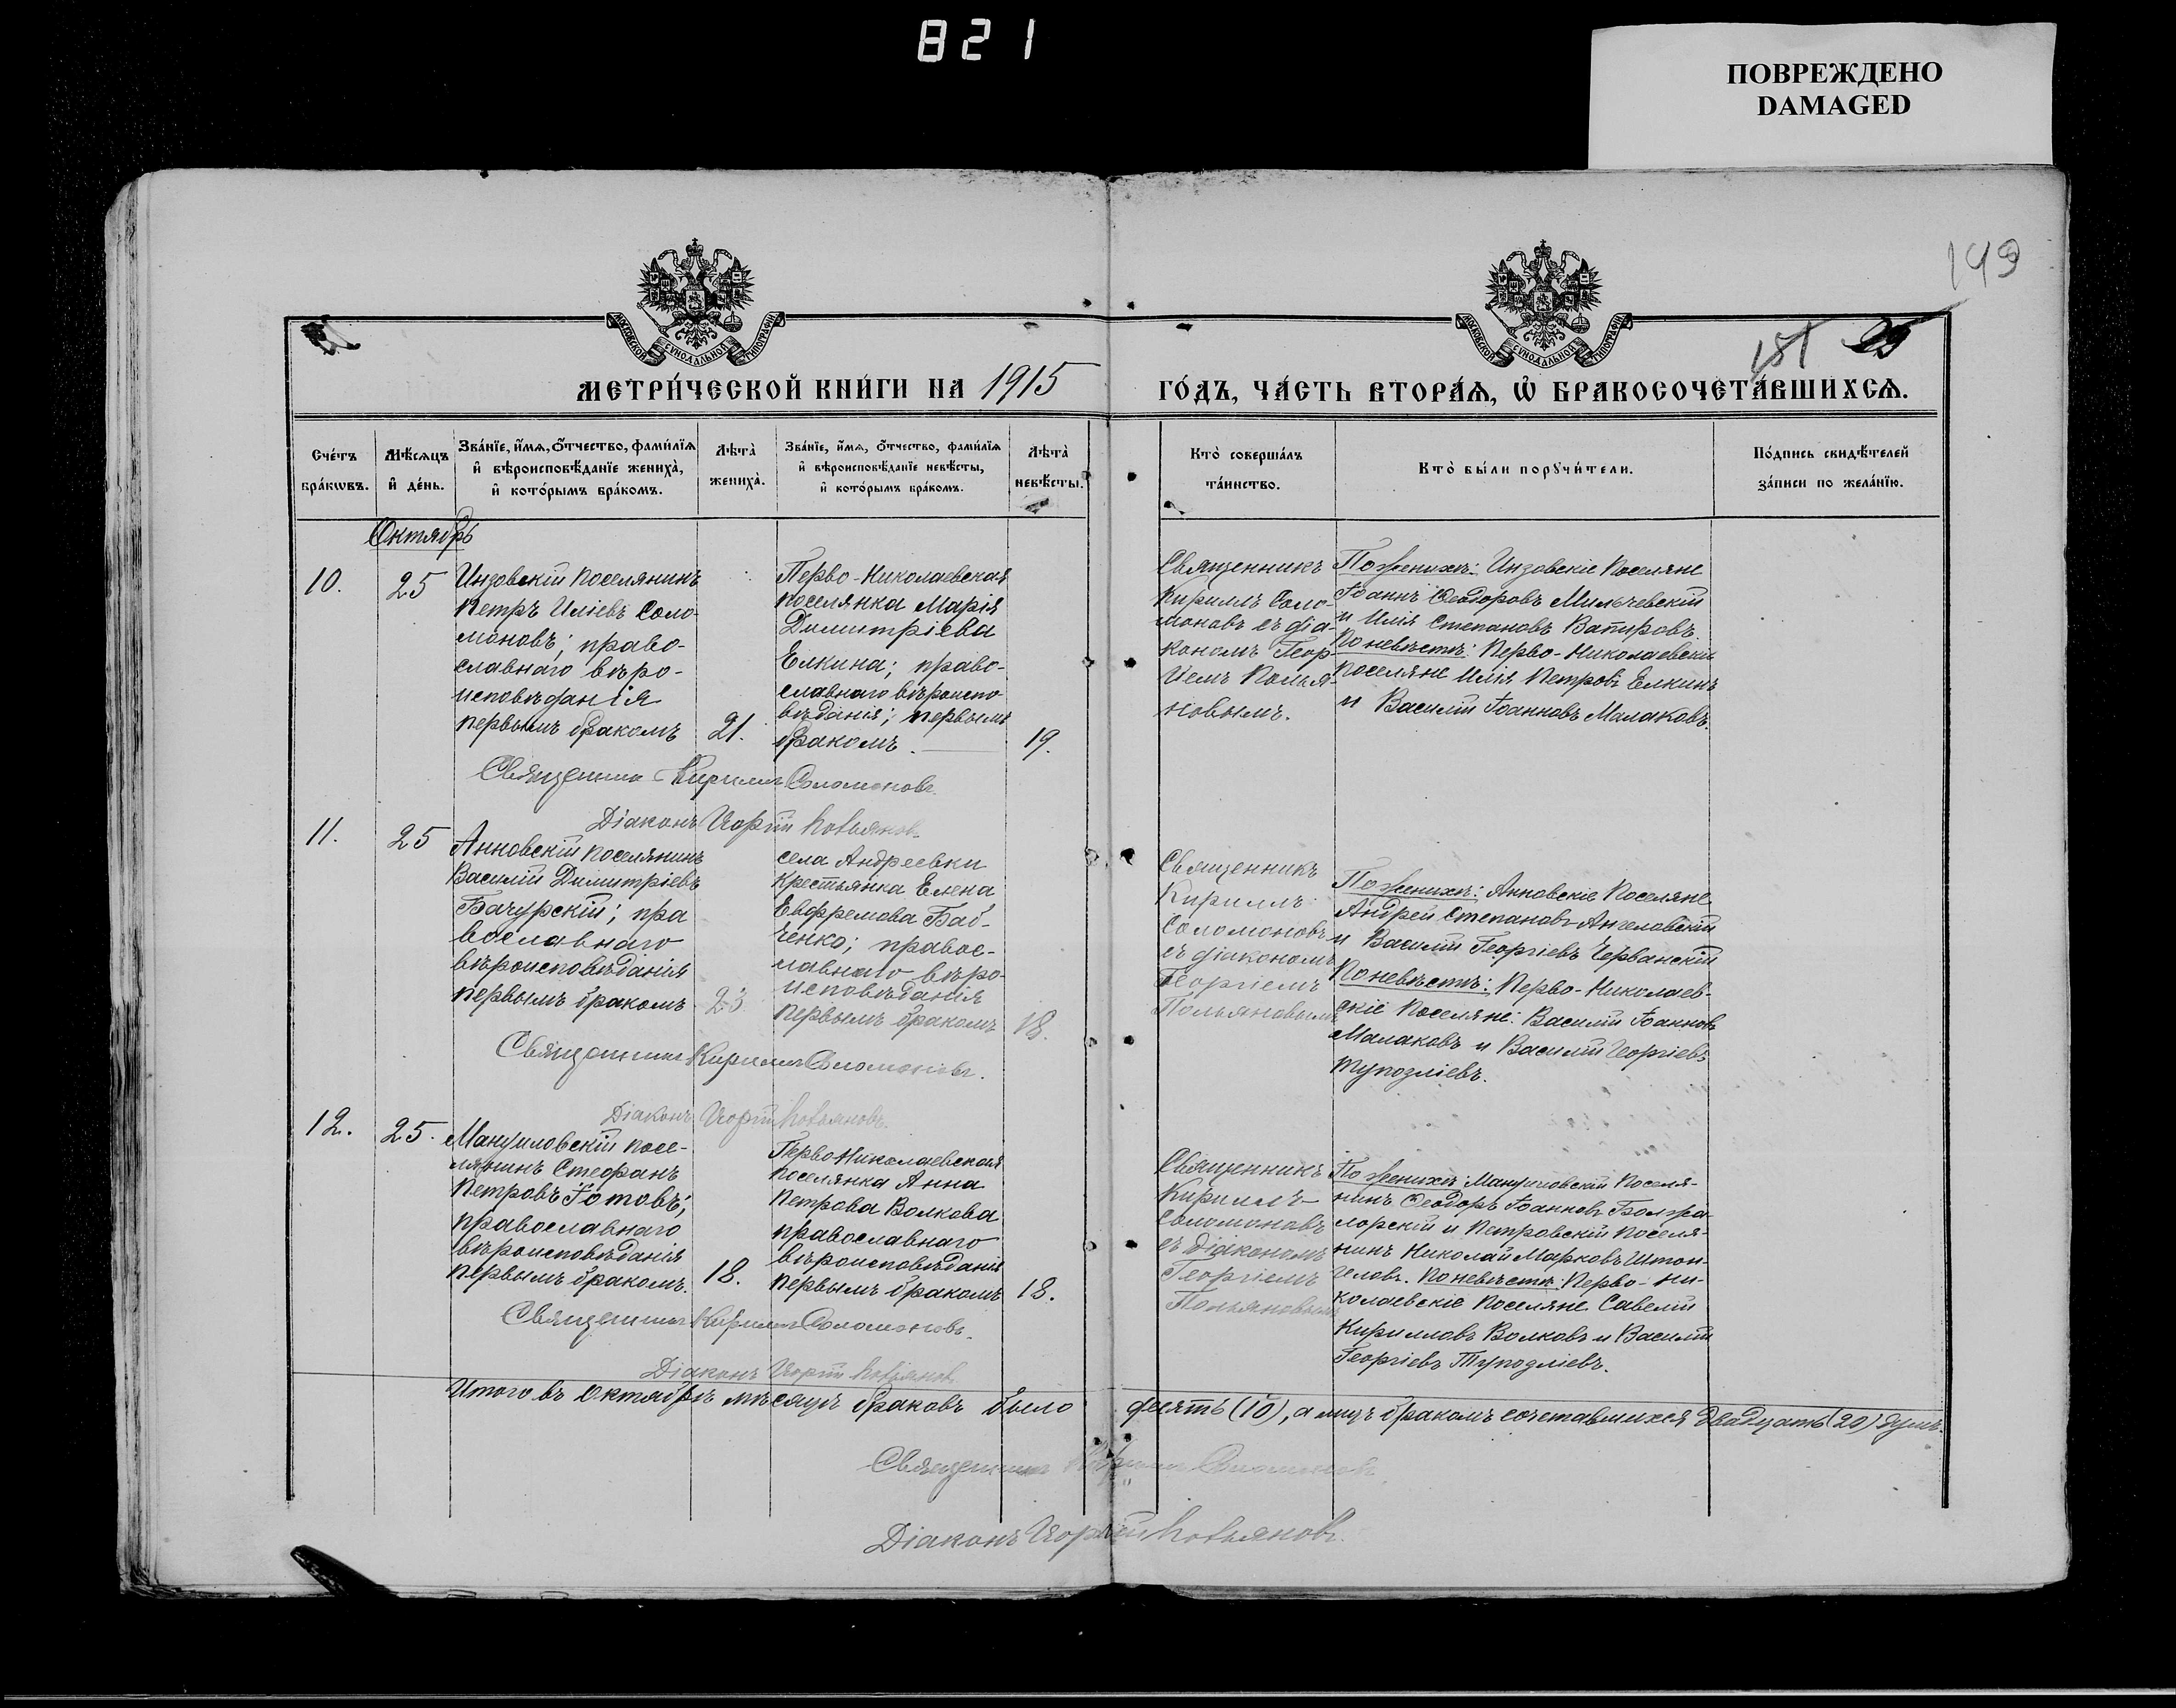 821
ПОВРЕЖДЕНО
DAMAGED
149
МОСКОВСКОЙ СѴНОДАЛЬНОЙ ТИПОГРАФІИ
МОСКОВСКОЙ СѴНОДАЛЬНОЙ ТИПОГРАФІИ
151
25
МЕТРИ́ЧЕСКОЙ КНИ́ГИ НА 1915
ГО́ДЪ, ЧА́СТЬ ВТОРА́Ѧ, Ѽ БРАКОСОЧЕТА́ВШИХСѦ.
Сче́тъ
бра́кѡвъ.
Мѣ́сѧцъ
и҆ де́нь.
Зва́нїе, и҆́мѧ, ѻ҆́тчество, фами́лїѧ
и҆ вѣроисповѣ́данїе жениха̀,
и҆ кото́рымъ бра́комъ.
Лѣ́та̀
жениха̀.
Зва́нїе, и҆́мѧ, ѻ҆́тчество, фами́лїѧ
и҆ вѣроисповѣ́данїе невѣ́сты,
и҆ кото́рымъ бра́комъ.
Лѣ́та̀
невѣ́сты.
Кто̀ соверша́лъ
та́инство.
Кто̀ бы́ли порꙋчи́тели.
По́дпись свидѣ́телей
за́писи по жела́нїю.
Октябрь
10.
25
Инзовскій поселянинъ
Петръ Иліевъ Соло-
моновъ; право-
славнаго вѣро-
исповѣданія
первымъ бракомъ
21.
Перво-Николаевская
поселянка Марія
Димитріева
Елкина; право-
славнаго вѣроиспо-
вѣданія; первымъ
бракомъ.
19.
Священникъ
Кириллъ Соло-
моновъ съ діа-
кономъ Геор-
гіемъ Полья-
новымъ.
По женихѣ: Инзовскіе поселяне
Іоаннъ Ѳеодоровъ Мильчевскій
и Илія Степановъ Вапировъ.
По невѣстѣ: Перво-Николаевскіе
поселяне Илія Петровъ Елкинъ
и Василій Іоанновъ Малаковъ.
Священникъ Кириллъ Соломоновъ.
Діаконъ Георгій Польяновъ.
11.
25
Анновскій поселянинъ
Василій Димитріевъ
Бачурскій; пра
вославнаго
вѣроисповѣданія
первымъ бракомъ
23.
села Андреевки
крестьянка Елена
Евфремова Баб-
ченко; правос-
лавнаго вѣро-
исповѣданія
первымъ бракомъ
18.
Священникъ
Кириллъ
Соломоновъ
съ діакономъ
Георгіемъ
Польяновымъ
По женихѣ: Анновскіе поселяне
Андрей Степановъ Ангеловскій
и Василій Георгіевъ Черванскій
По невѣстѣ: Перво-Николаев-
скіе поселяне: Василій Іоанновъ
Малаковъ и Василій Георгіевъ
Тупозліевъ.
Священникъ Кириллъ Соломоновъ.
Діаконъ Георгій Польяновъ.
12.
25.
Мануиловскій посе-
лянинъ Стефанъ
Петровъ Готовъ;
православнаго
вѣроисповѣданія
первымъ бракомъ.
18.
Перво Николаевская
поселянка Анна
Петрова Волкова
православнаго
вѣроисповѣданія
первымъ бракомъ
18.
Священникъ
Кириллъ
Соломоновъ
съ Діакономъ
Георгіемъ
Польяновымъ
По женихѣ: Мануиловскій поселя-
нинъ Ѳеодоръ Іоанновъ
и Петровскій поселя-
нинъ Николай Марковъ
По невѣстѣ: Перво-Ни-
колаевскіе поселяне Савелій
Кирилловъ Волковъ и Василій
Георгіевъ Тупозліевъ.
Священникъ Кириллъ Соломоновъ.
Діаконъ Георгій Польяновъ.
Итого въ Октябрѣ мѣсяцѣ браковъ было десять (10), а лицъ бракомъ сочетавшихся двадцать (20) душъ.
Священникъ Кириллъ Соломоновъ.
Діаконъ Георгій Польяновъ.